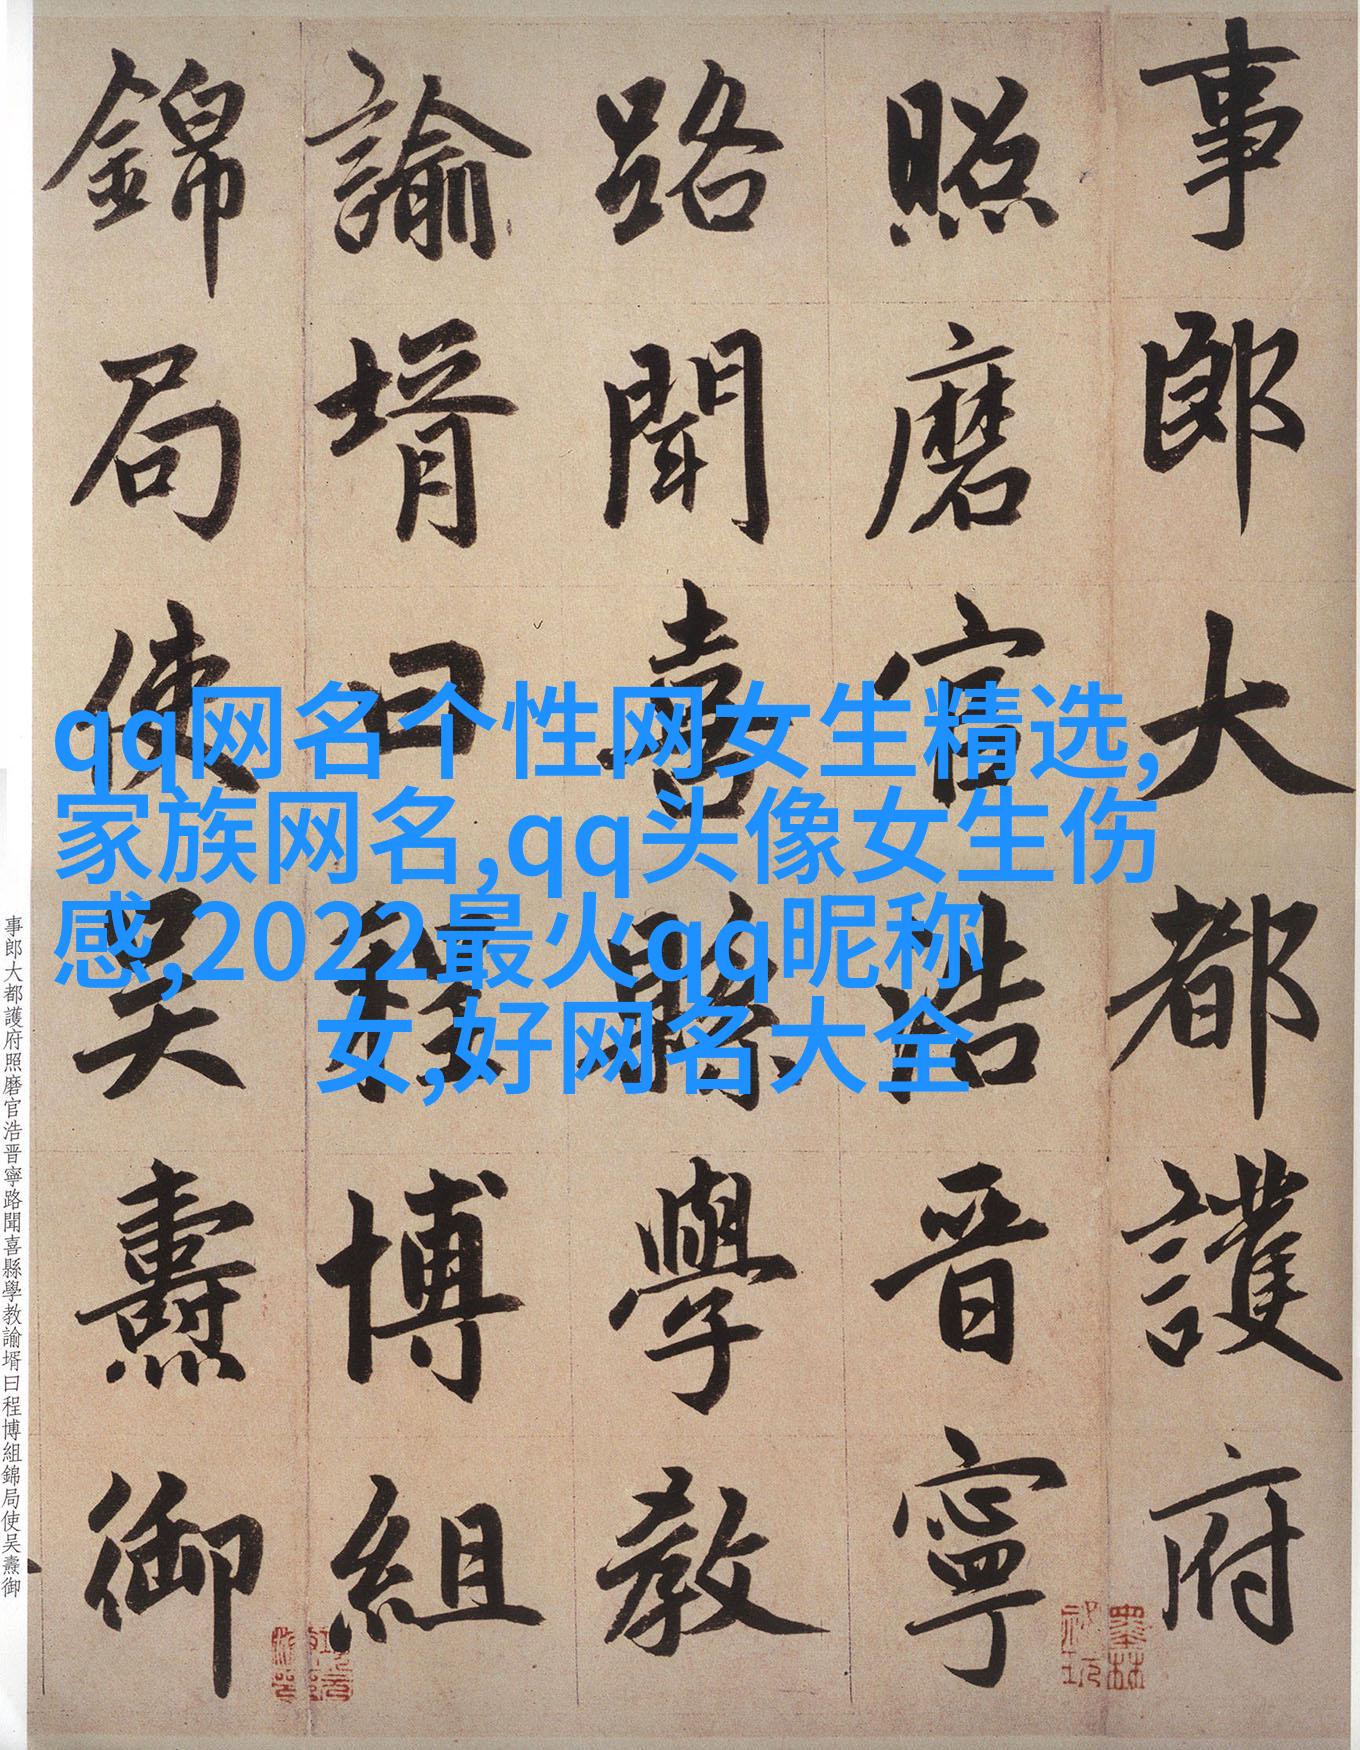 事郎大都護府
照磨官浩晋寧
路聞喜縣學教
諭壻曰程博組
錦局使吴燾御
qq网名个性网女生精选,
家族网名,qq头像女生伤
感,2022最火qq昵称
女,好网名大全
事郎大都護府照磨官浩晋寧路聞喜縣學教諭壻曰程博組錦局使吴燾御